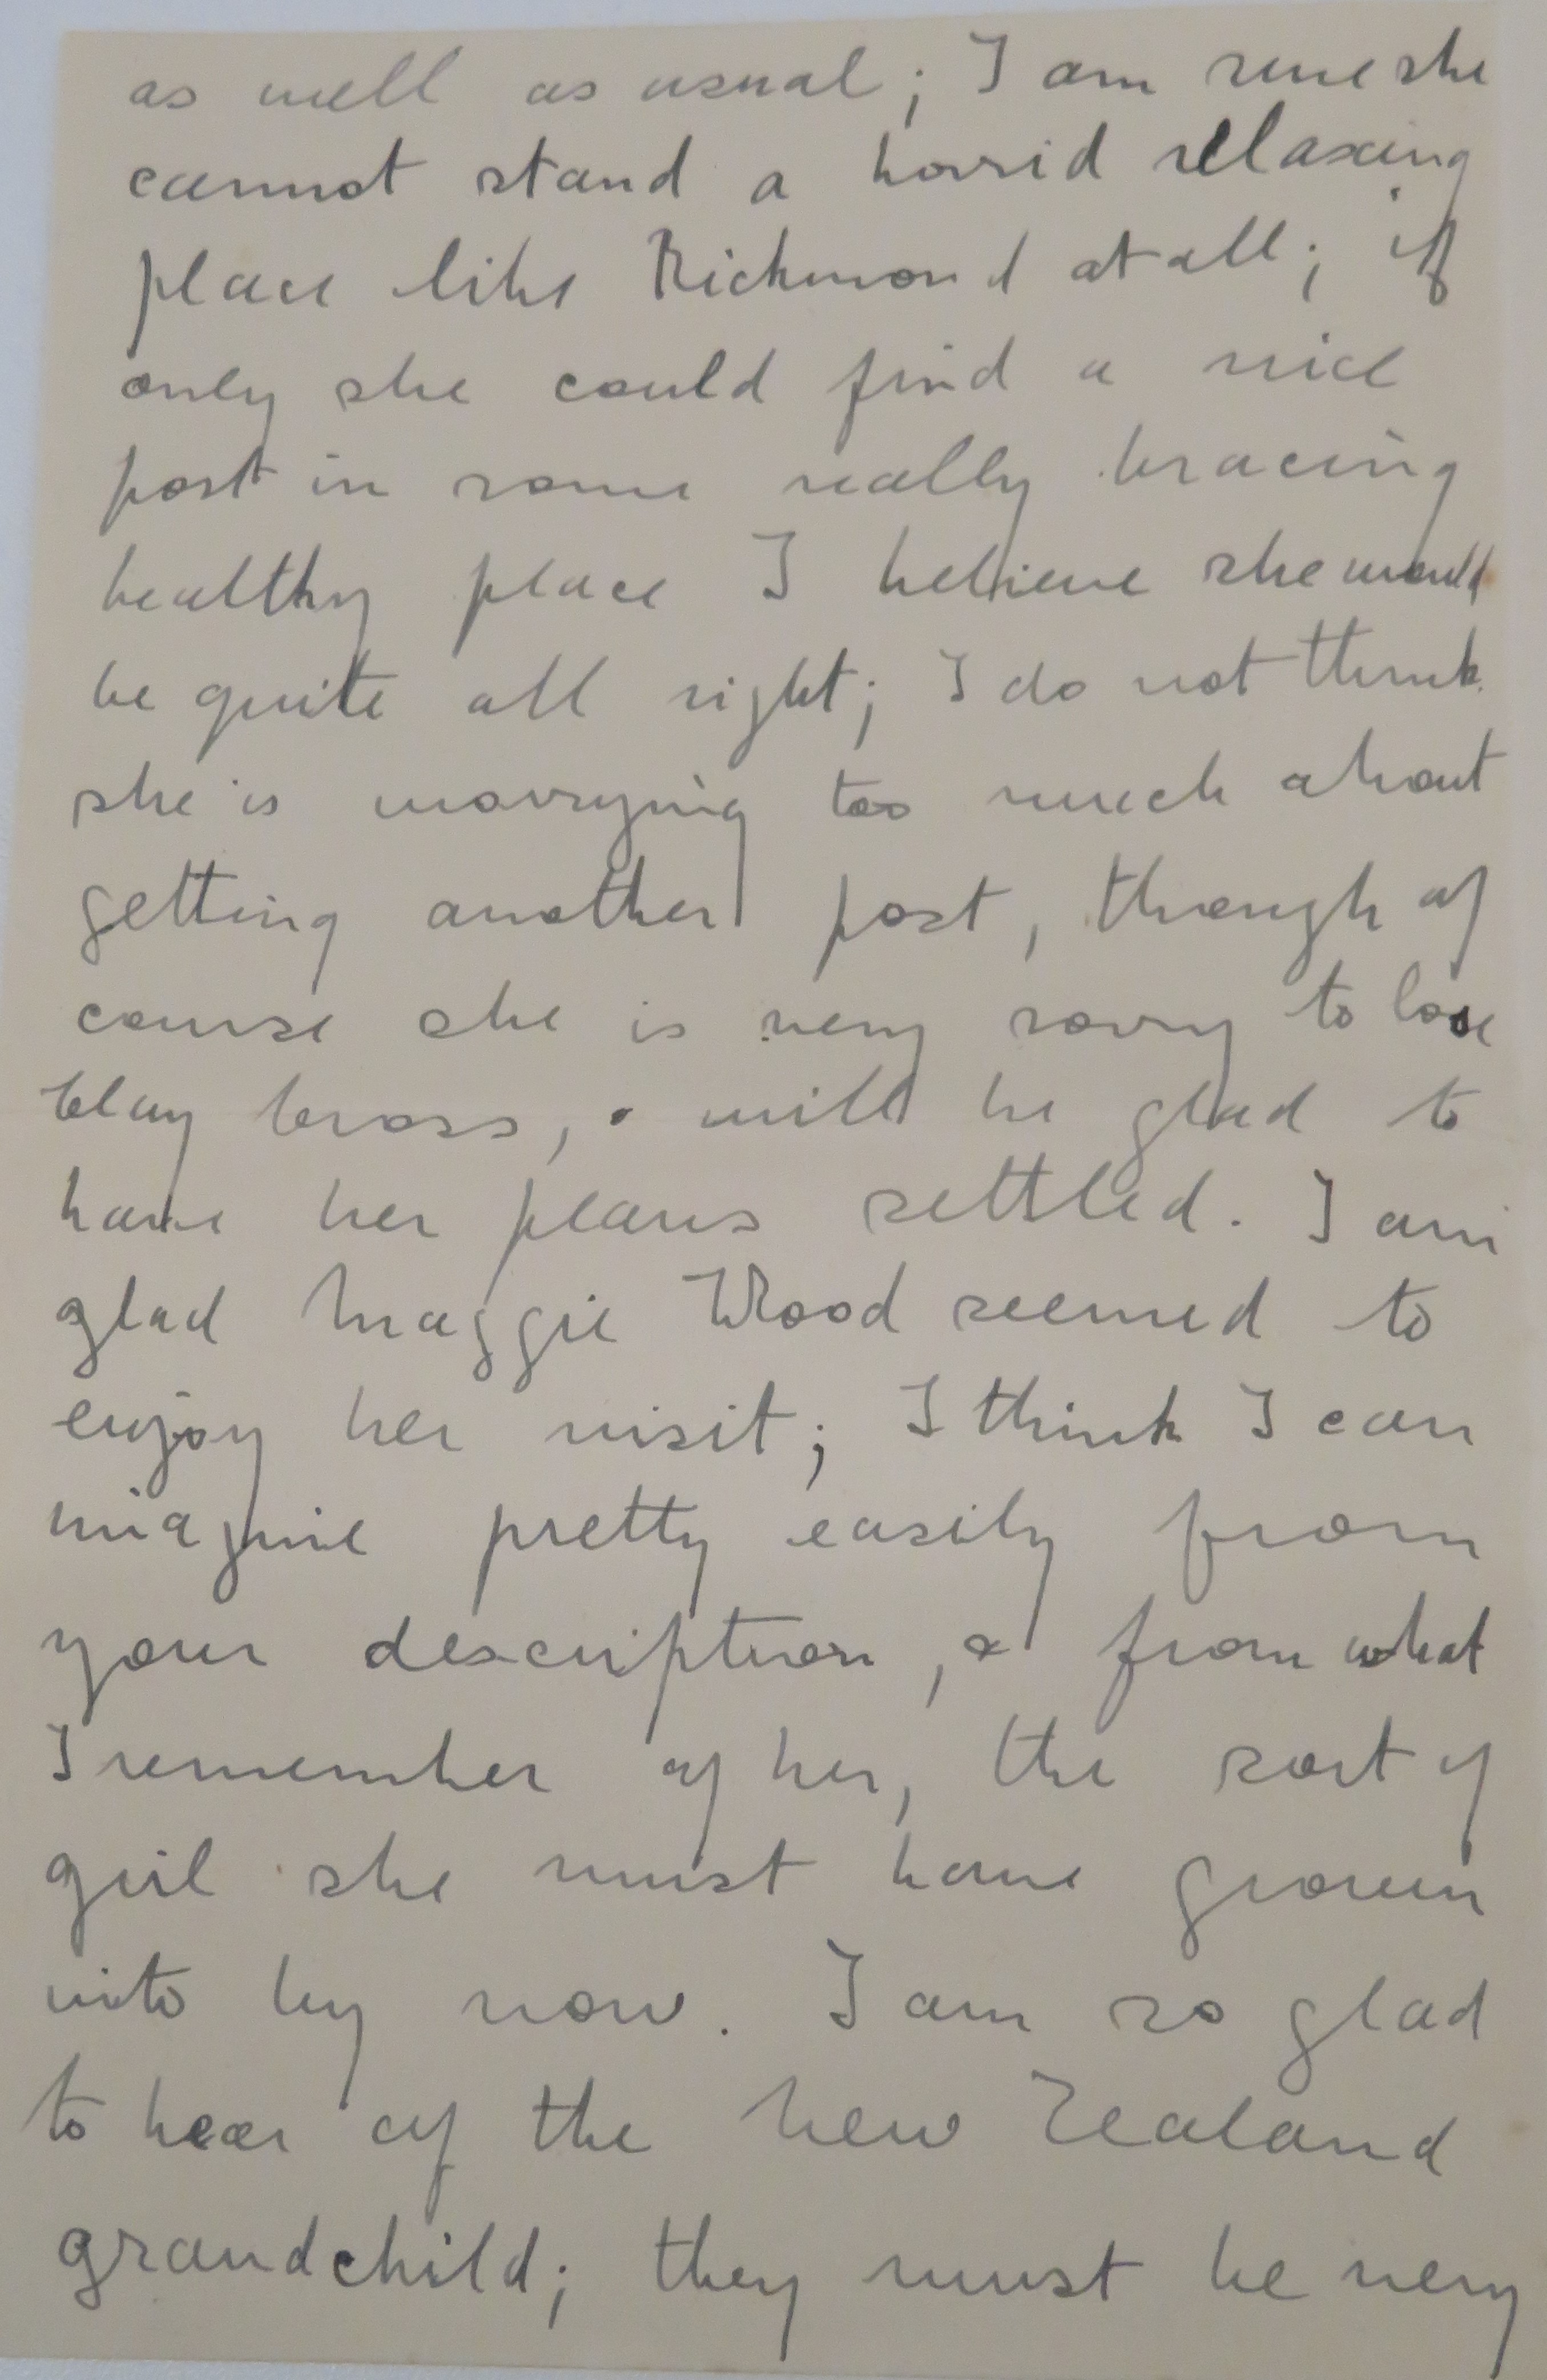 as well as usual; I am sure she
cannot stand a horrid relaxing
place like Richmond at all; if
only she could find a nice
post in some really bracing
healthy place I believe she would
be quite all right; I do not think
she is worrying too much about
getting another post, though of
course she is very sorry to lose
Clay Cross, & will be glad to
have her plans settled. I am
glad Maggie Wood seemed to
enjoy her visit; I think I can
imagine pretty easily from
your description, & from what
I remember of her, the sort of
girl she must have grown
into by now. I am so glad
to hear of the New Zealand
grandchild; they must be very